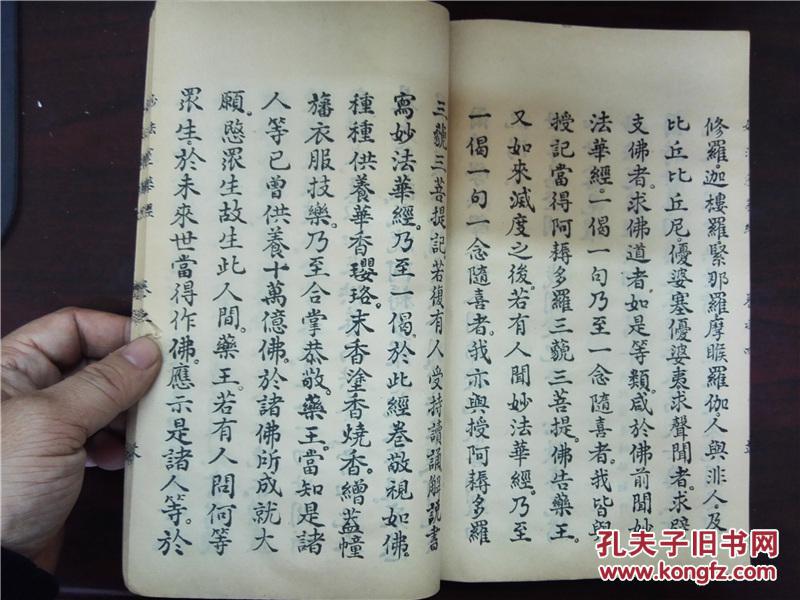 修羅。迦樓羅緊那羅摩睺羅伽。人與非人。及
比丘比丘尼。優婆塞優婆夷求聲聞者。求辟
支佛者。求佛道者。如是等類。咸於佛前聞妙
法華經。一偈一句乃至一念隨喜者。我皆與
授記當得阿耨多羅三藐三菩提。佛告藥王。
又如來滅度之後。若有人聞妙法華經。乃至
一偈一句一念隨喜者。我亦與授阿耨多羅
三藐三菩提記。若復有人受持讀誦解說書
寫妙法華經。乃至一偈。於此經卷敬視如佛。
種種供養華香瓔珞。末香塗香燒香。繒蓋幢
旛。衣服技樂。乃至合掌恭敬。藥王。當知是諸
人等已曾供養十萬億佛。於諸佛所成就大
願。愍眾生故生此人間。藥王。若有人問何等
眾生。於未來世當得作佛。應示是諸人等。於
孔夫子旧书网
www.kongfz.com